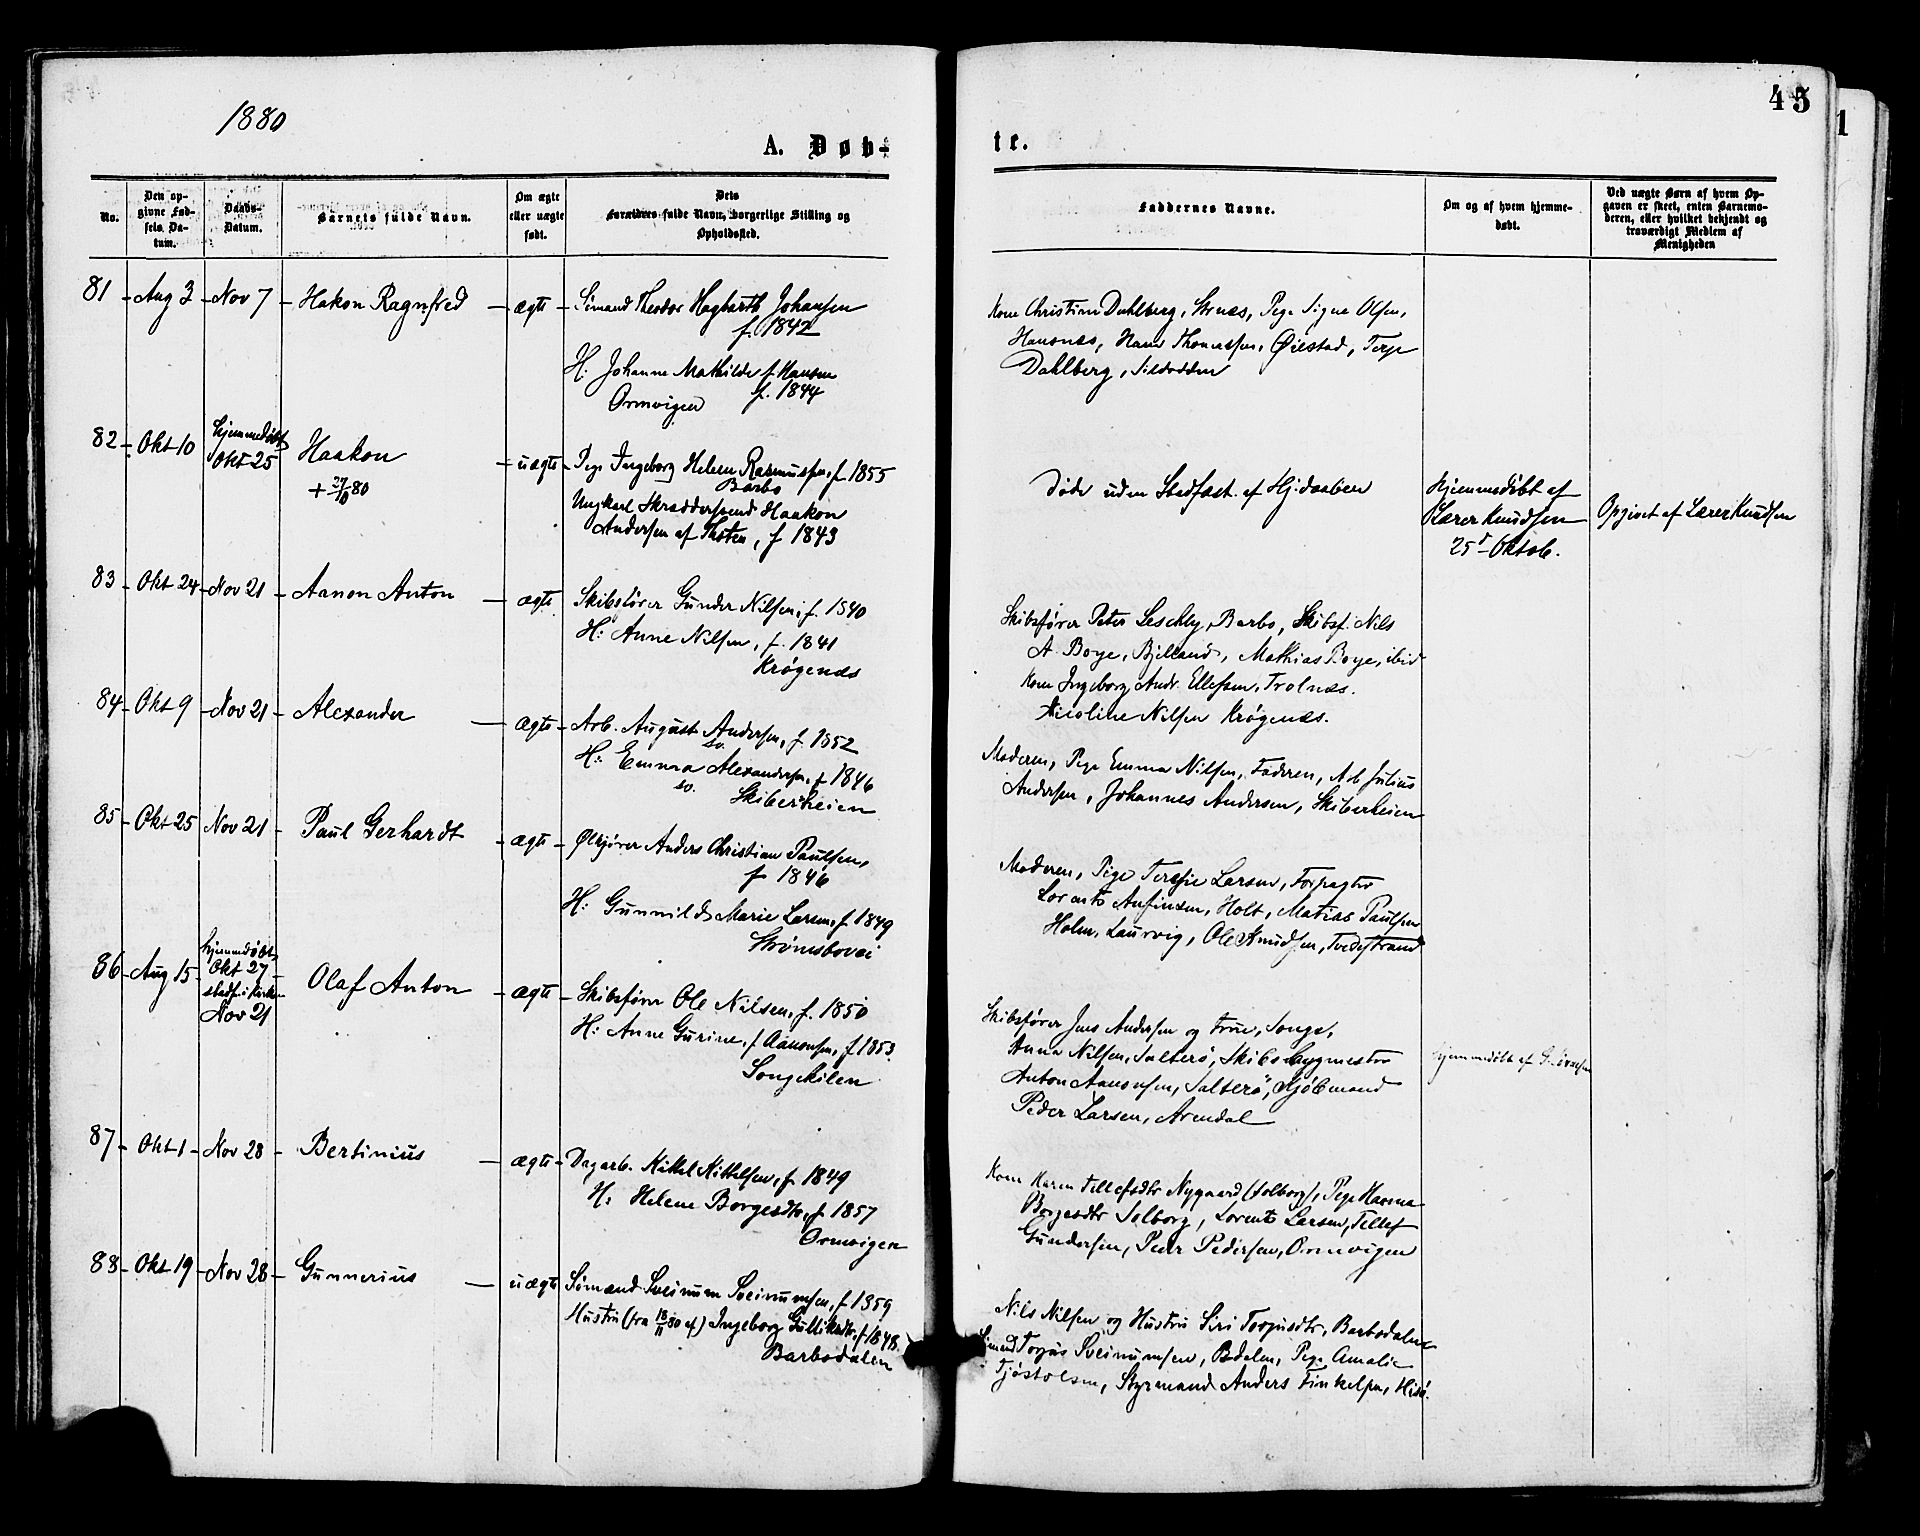 45
1
1880
A. Døb-
te.
No.
Den op-
givne Fød-
sels Da-
tum.
Daabs-
Datum.
Barnets fulde Navn.
Om ægte
eller uægte
født.
Dets
Forældres fulde Navn, borgerlige Stilling og
Opholdssted.
Faddernes Navne.
Om og af hvem hjemme-
døbt.
Ved uægte Børn af hvem Op-
gaven er skeet, enten Barnemo-
deren, eller hvilket bekjendt og
troværdigt Medlem af
Menigheden
81 Aug 3 Nov 7 Hakon Ragnfred ægte Sømand Theodor Hagbarth Johansen
f. 1842
H: Johanne Mathilde f. Hansen
f. 1844
Ormvigen
Kone Christine Dahlberg, Strnæs, Pige Signe Olsen,
Hansnæs, Hans Thomassen, Øiestad, Terje
Dahlberg, Sildodden
82 Okt 10 hjemmedøbt
Okt 25 Haakon
+ 27/10 80
uægte Pige Ingeborg Helene Rasmussen, f 1855
Barbo
Ungkarl Skræddersvend Haakon
Andersen af Thoten, f 1843
Døde uden Stadfæst. af Hj.daaben
Hjemmedøbt af
Lærer Knudsen
25 Oktob.
Opgivet af Lærer Knudsen
83 Okt 24 Nov 21 Aanon Anton ægte Skibsfører Gunder Nilsen, f. 1840
H: Anne Nilsen, f. 1841
Krøgenæs
Skibsfører Peter Leschly, Barbo, Skibsf. Nils
A. Boye, Bjelland, Mathias Boye, ibid
Kone Ingeborg Andr. Ellefsen, Trolnæs.
Nicoline Nilsen Krøgenæs.
84 Okt 9 Nov 21 Alexander ægte Arb. August Andersen, f. 1852
sv.
H: Emma Alexandersen, f 1846
sv.
Skiberheien
Moderen, Pige Emma Nilsen, Faderen, Arb Julius
Andersen, Johannes Andersen, Skiberheien
85 Okt 25 Nov 21 Paul Gerhardt ægte Ølkjører Anders Christian Paulsen,
f 1846
H: Gunnild Marie Larsen, f 1849
Strømsbovei
Moderen, Pige Teresie Larsen, Forpagter
Lorents Anfinsen, Holt, Matias Paulsen
Holm, Laurvig, Ole Knudsen, Tvedestrand
86 Aug 15 hjemmedøbt
Okt 27
stadf. i Kirken
Nov 21
Olaf Anton ægte Skibsfører Ole Nilsen, f. 1850
H: Anne Gurine, f Aanonsen, f 1853.
Songekilen
Skibsfører Jens Andersen og Frue, Songe,
Anna Nilsen, Salterø, Skibsbygmester
Anton Aanonsen, Salterø, Kjøbmand
Peder Larsen, Arendal
Hjemmedøbt af
87 Okt 1 Nov 28 Bertinius ægte Dagarb. Kittel Kittelsen, f 1849
H: Helene Borgesdtr, f 1857
Ormvigen
Kone Karen Tellefsdtr Nygaard (Solborg), Pige Hanna
Borgesdtr Solborg, Lorents Larsen, Tellef
Gundersen, Peder Pedersen, Ormvigen
88 Okt 19 Nov 28 Gunnerius uægte Sømand Sveinum Sveinumsen, f 1859
Hustru (fra 18/11 80 af) Ingeborg Gulliksdtr, f 1848.
Barbodalen
Nils Nilsen og Hustru Siri Torjusdtr, Barbodalen
Sømand Torjus Sveinumsen, Bdalen, Pige Amalie
Tjøstolsen, Styrmand Anders Finkelsen, Hisø.